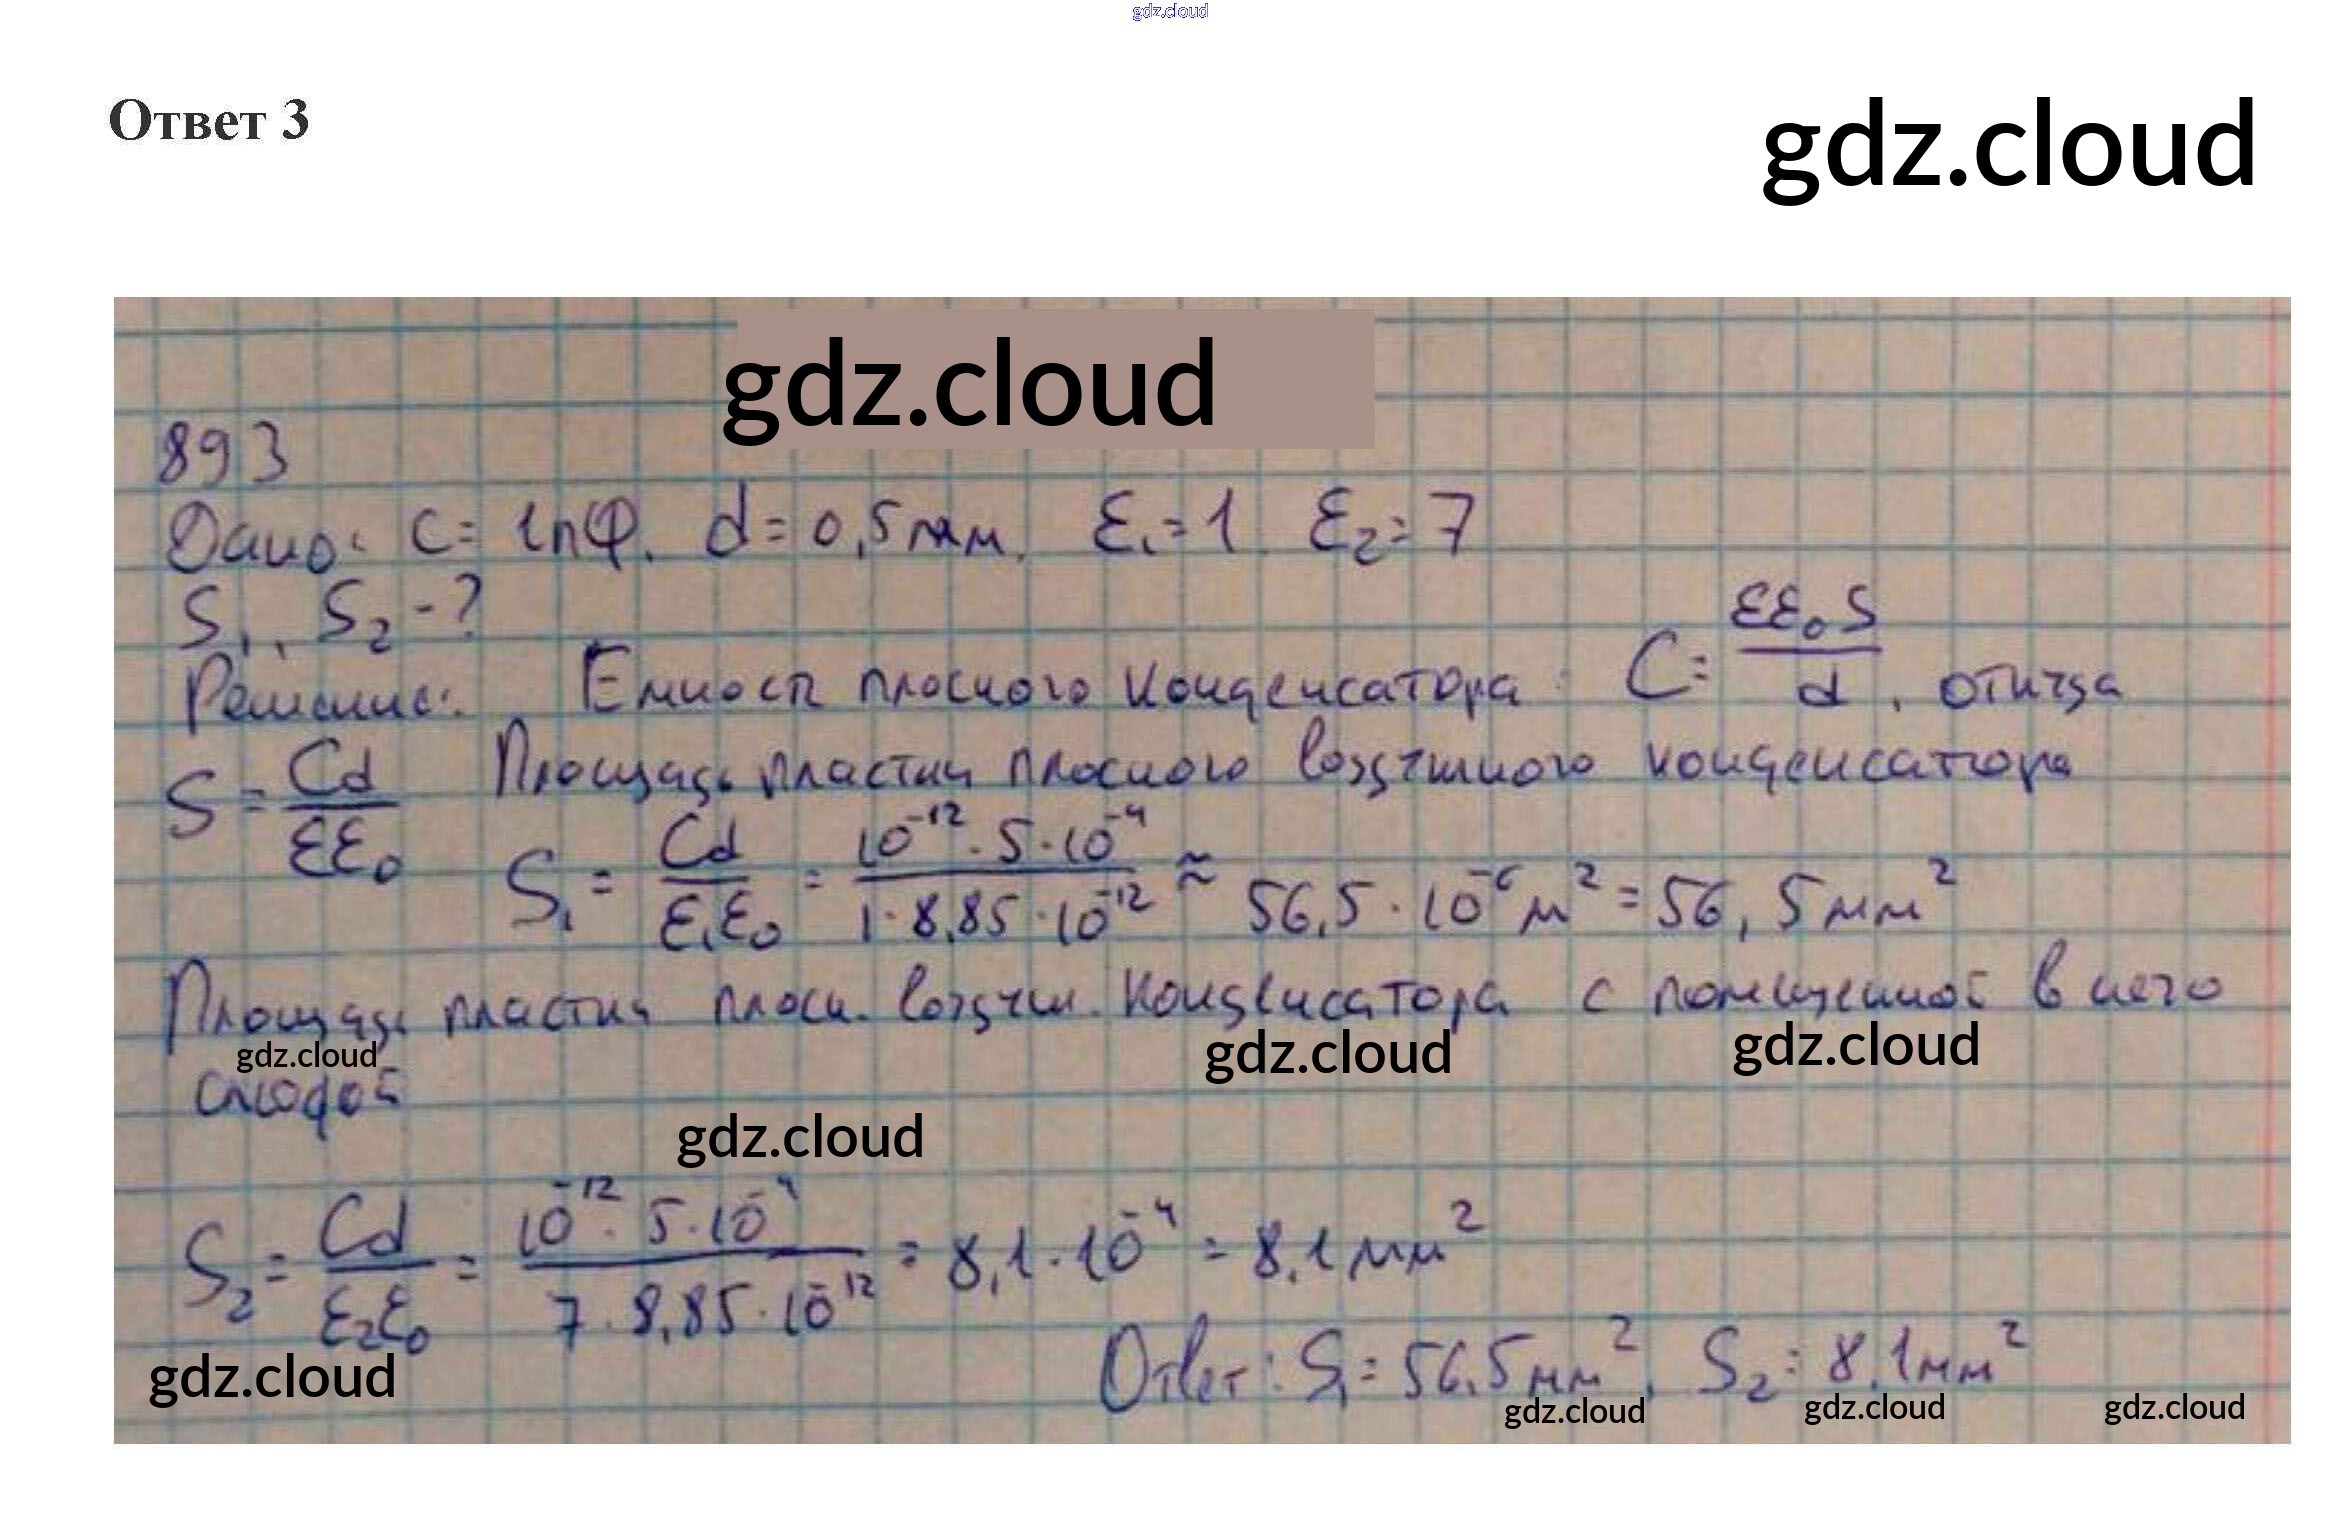 gdz.cloud
Ответ 3
gdz.cloud
gdz.cloud
893
Дано: C= 1пФ. d=0,5мм. ε₁=1 ε₂=7
S₁, S₂-?
Решение: Емкость плоского конденсатора: C= εε₀S/d, откуда
S = Cd/εε₀ Площадь пластин плоского воздушного конденсатора
S₁ = Cd/ε₁ε₀ = 10⁻¹²·5·10⁻⁴/1·8,85·10⁻¹² ≈ 56,5·10⁻⁶м² = 56,5мм²
Площадь пластин плоск. воздушн. конденсатора с помещенной в него
gdz.cloud gdz.cloud gdz.cloud
слюдой
gdz.cloud
S₂ = Cd/ε₂ε₀ = 10⁻¹²·5·10⁻⁴/7·8,85·10⁻¹² = 8,1·10⁻⁴ = 8,1мм²
Ответ: S₁= 56,5мм², S₂= 8,1мм²
gdz.cloud gdz.cloud gdz.cloud gdz.cloud